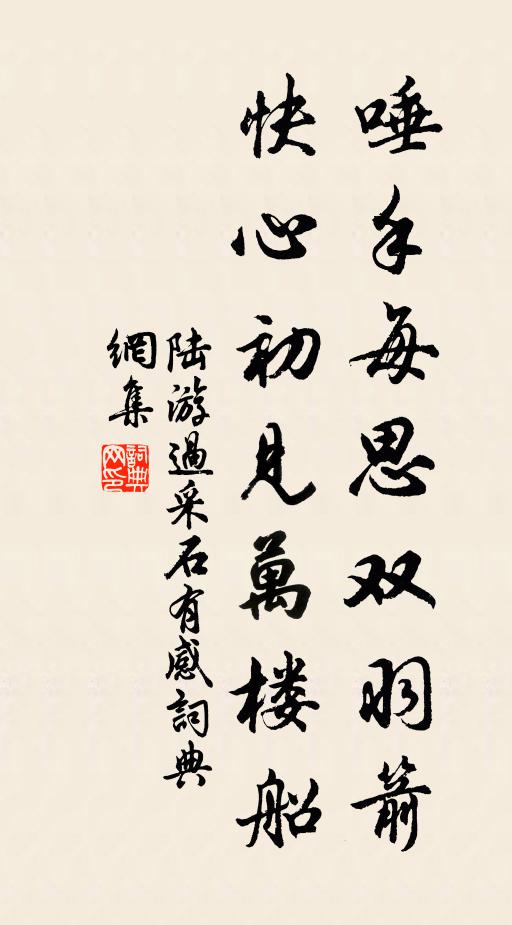 唾手每思双羽箭
快心初見萬楼船
陆游過采石有感詞典
網集
詞典网印